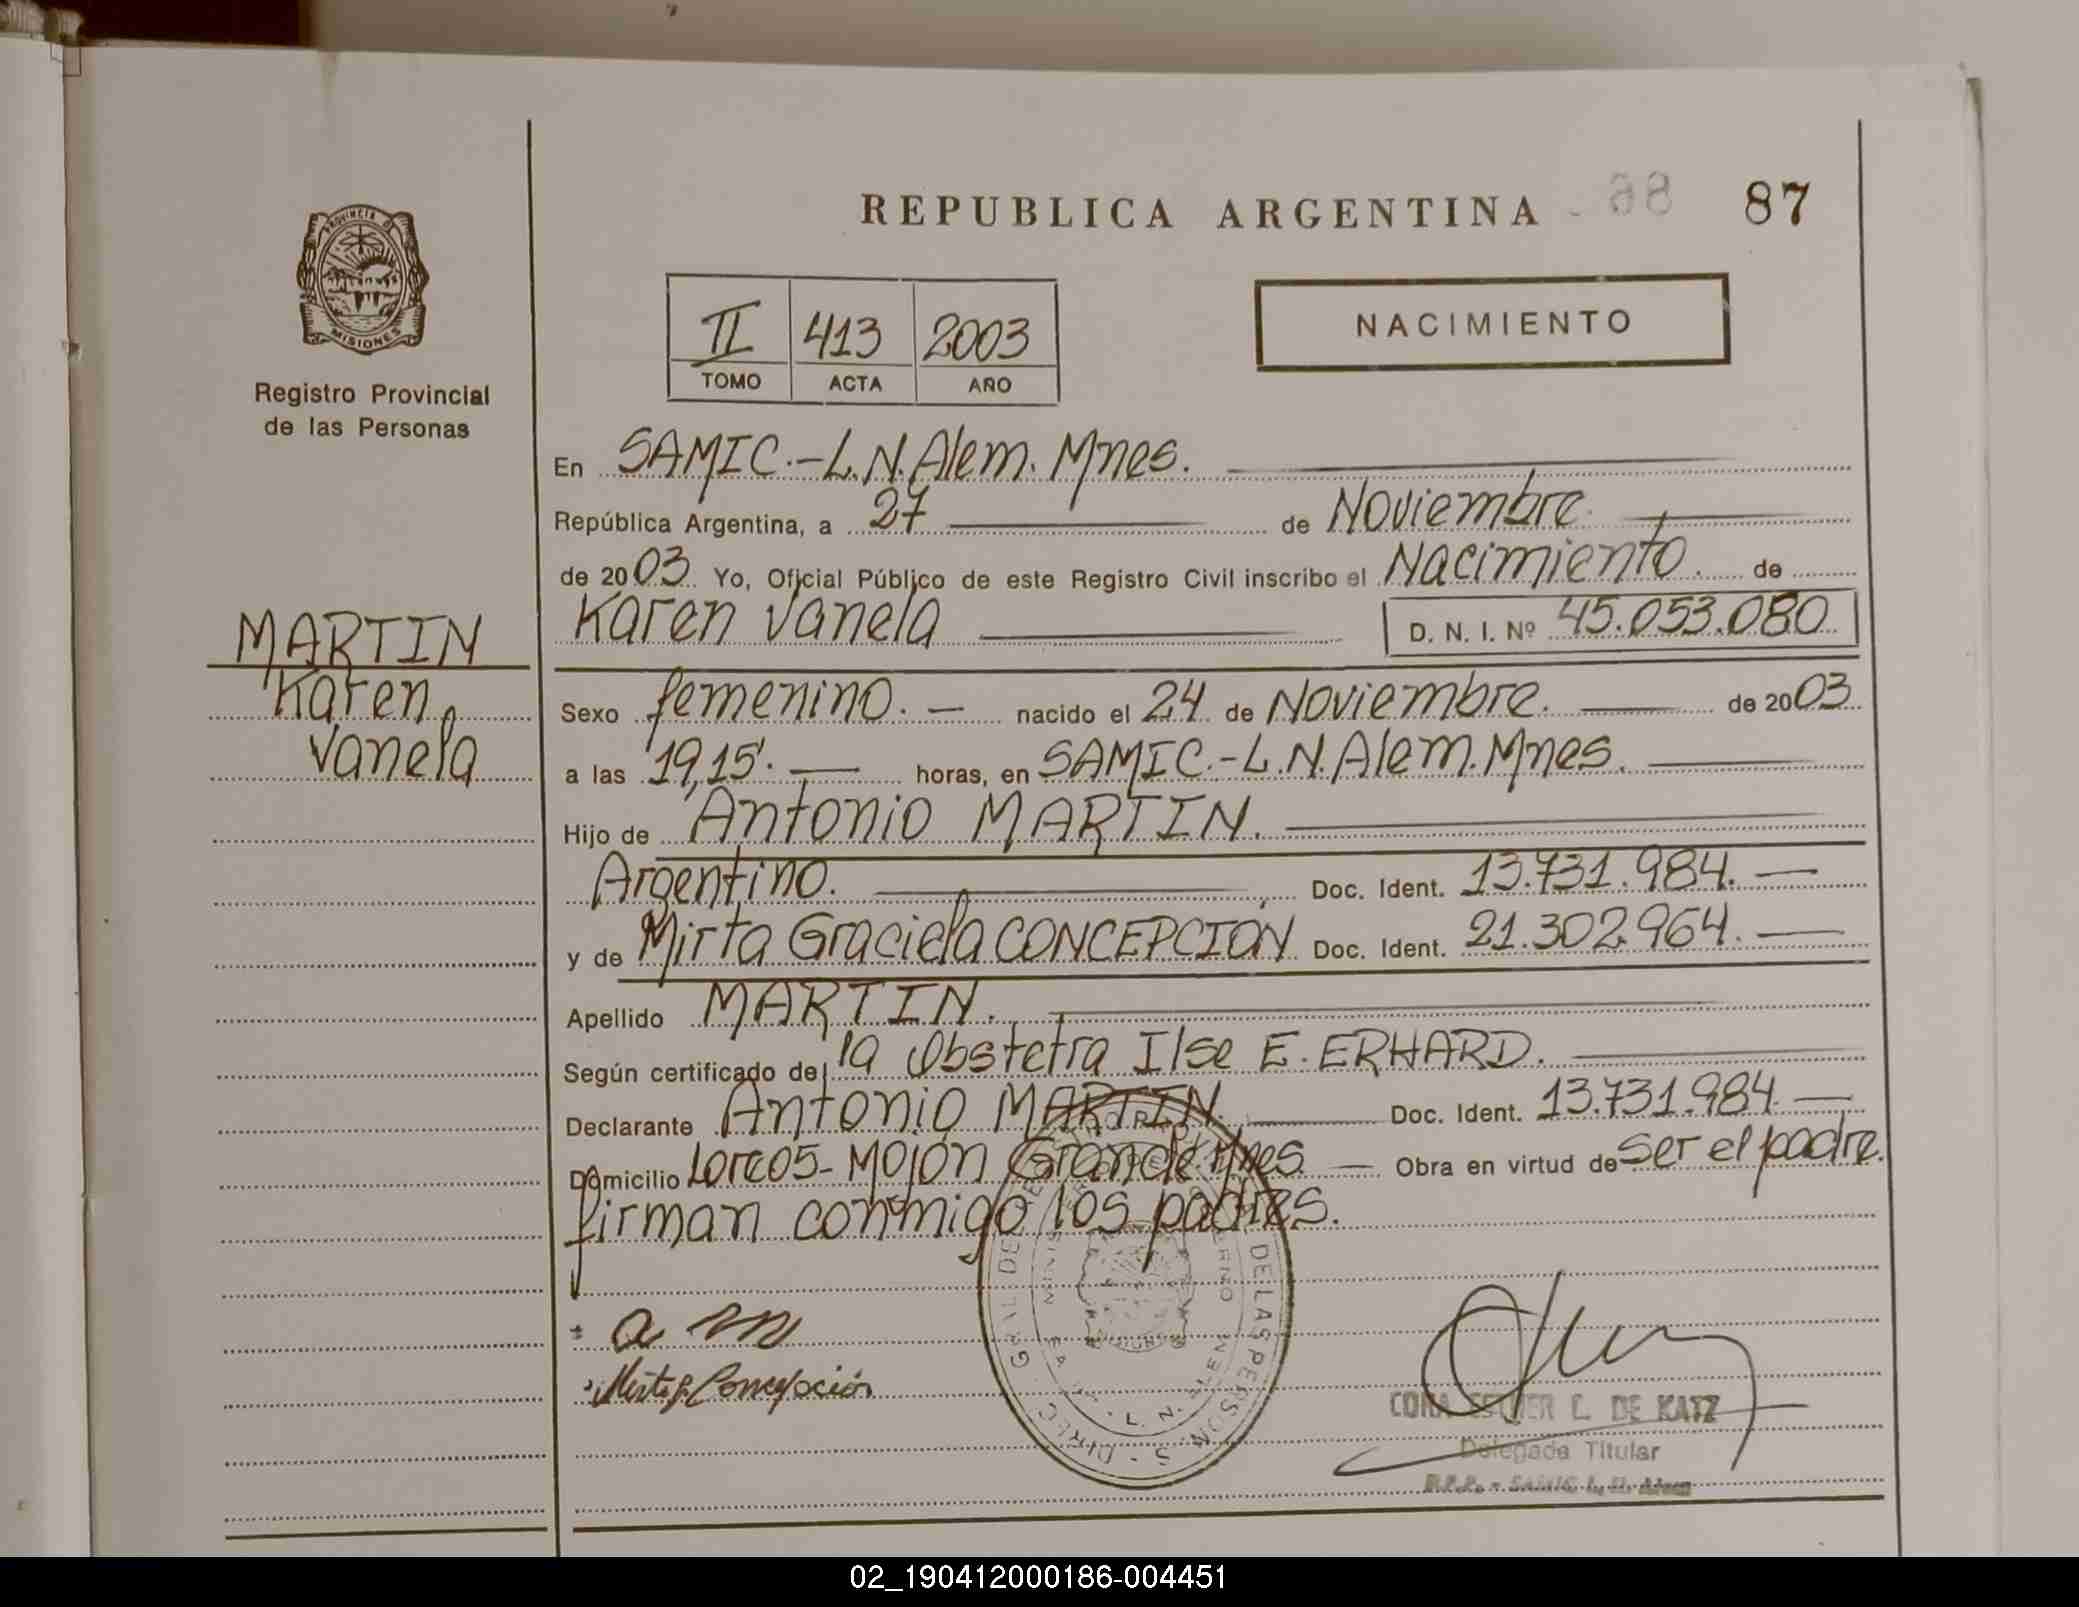 REPUBLICA ARGENTINA 87
PROVINCIA DE
MISIONES
Registro Provincial
de las Personas
II 413 2003
TOMO ACTA AÑO
NACIMIENTO
En SAMIC.-L.N.Alem. Mnes.
República Argentina, a 27 de Noviembre.
de 2003. Yo, Oficial Público de este Registro Civil inscribo el Nacimiento. de
Karen Vanela D. N. I. Nº 45.053.080
MARTIN
Karen
Vanela
Sexo femenino. — nacido el 24 de Noviembre. de 2003
a las 19,15'. — horas, en SAMIC.-L.N.Alem.Mnes.
Hijo de Antonio MARTIN.
Argentino. Doc. Ident. 13.731.984. —
y de Mirta Graciela CONCEPCIÓN Doc. Ident. 21.302.964. —
Apellido MARTIN.
Según certificado de la Obstetra Ilse E. ERHARD.
Declarante Antonio MARTIN. Doc. Ident. 13.731.984. —
Domicilio Mojón Grande Mnes — Obra en virtud de ser el padre.
firman conmigo los padres.
a m
Mirta G. Concepción
DIREC. GRAL DE DE LAS PERSONAS
L. N. ALEM
MISIONES
CORA ESTHER L. DE KATZ
Delegada Titular
R.P.P. - SAMIC L. N. Alem
02_190412000186-004451